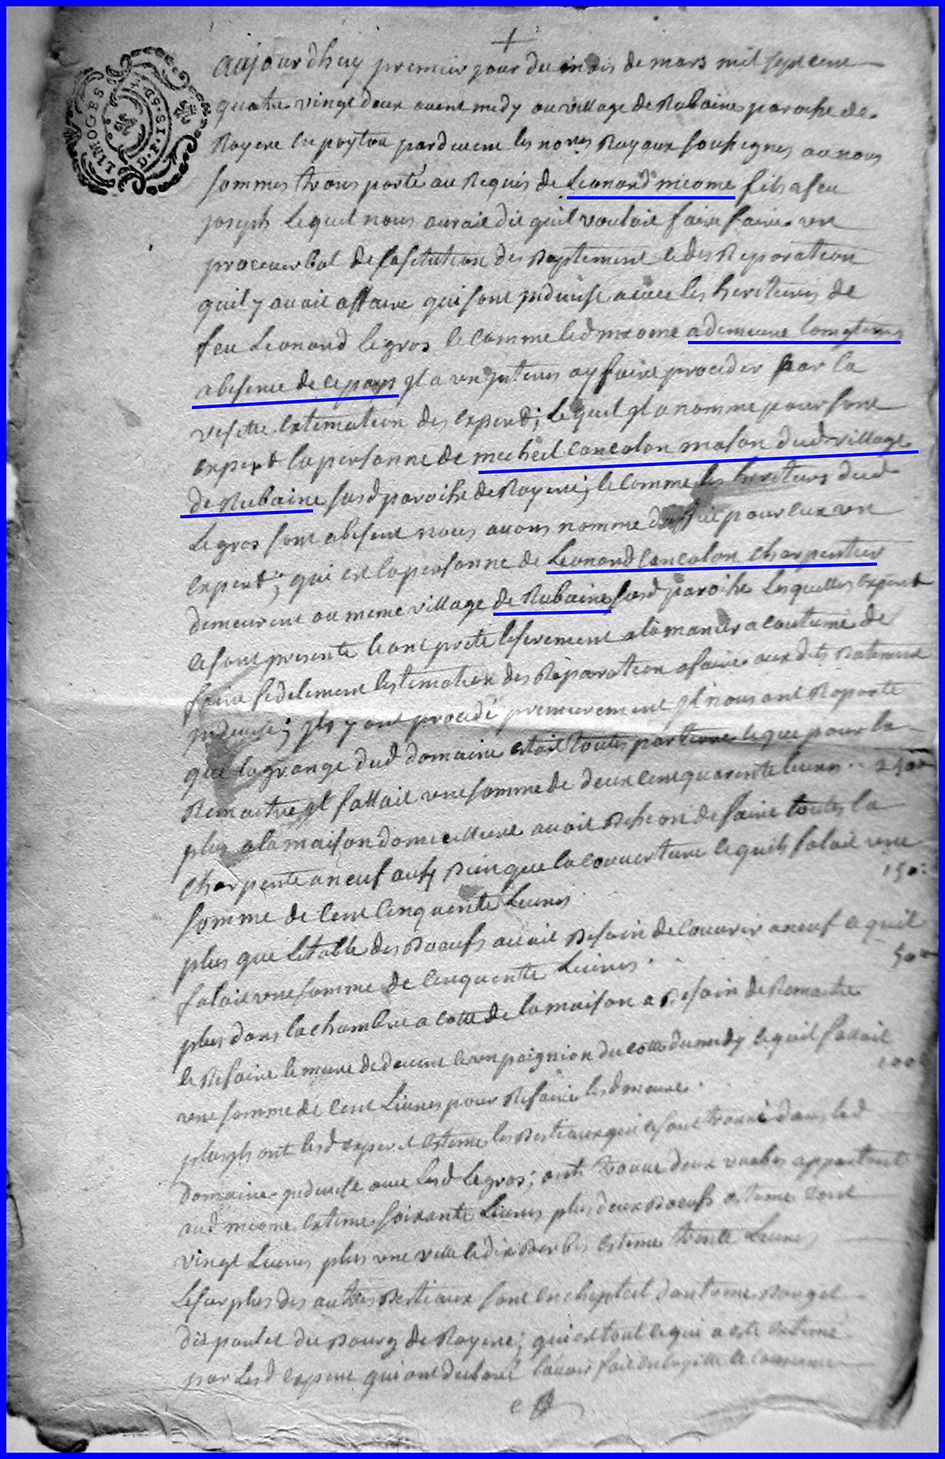 LIMOGES
aujourdhuy premier jour du mois de mars mil sept cent
quatre vingt deux avent midy au village de Rubaine paroche de
Royere en poytou par devent les no^res Royaux sousignes ou nous
sommes transporté au Requis de Leonard micome fils a feu
joseph lequel nous aurait dit quil voulait faire faire un
procer verbal de des Baptiment et des Reparation
quil y avait affaire qui sont indivise avec les heritiers de
feu Leonard Legros et comme led micome a demeure lomgtems
absence de ce pays il a un interes ay faire proceder par la
visitte estimation des expert; lequel il a nomme pour sont
expert la personne de micheil Cancalon mason dud village
de Rubaine susd paroiche de Royere; et comme les heritiers dud
Legros sont absent nous avons nomme pour eux un
expert; qui est la personne de Leonard Cancalon charpentier
demeurent au meme village de Rubaine susd paroiche Lesquelles expert
ce sont presente et ont prete leserement a la manier acoutumé de
faire fidelement lestimation des Reparation a faire aux dits Batiment
indivise; ils y ont procedé premierement il nous ont Raporte
que la grange dud domaine etoit toutes par terre et que pour la
Remaitre il fallait une somme de deux cent quarente livres .. 240
plus a la maison avait Beseon de faire toutes la
Charpente a neuf aussy Bien que la couverture et quil falait une
somme de Cent Cinquente Livres 150
plus que Letable des Boeufs avait Besoin de Couvrir a neuf et quil
falait une somme de Cinquente Livres . 50
plus dans la chambre a cotté de la maison a Besoin de Remaitre
et Refaire le mure de devent et un paignion du cotté du midy et quil fallait
une somme de Cent Livres pour Refaire lesd meure . 100
plus ils ont lesd expert estime les Bestiaux qui ce sont trouvé dans led
domaine indivise avec Lesd Legros; ont trouve deux vaches appartent
aud micome estime soixante Livres plus deux Boeufs estime cent
vingt Livres plus une et dix Berbis estime trente Livres
Le surplus des autres Bestiaux sont en chepteil d'antoine Bouget
dit poulet du Bourg de Royere; qui est tout ce qui a esté estimé
par Lesd expert qui ont declaré lavoir fait